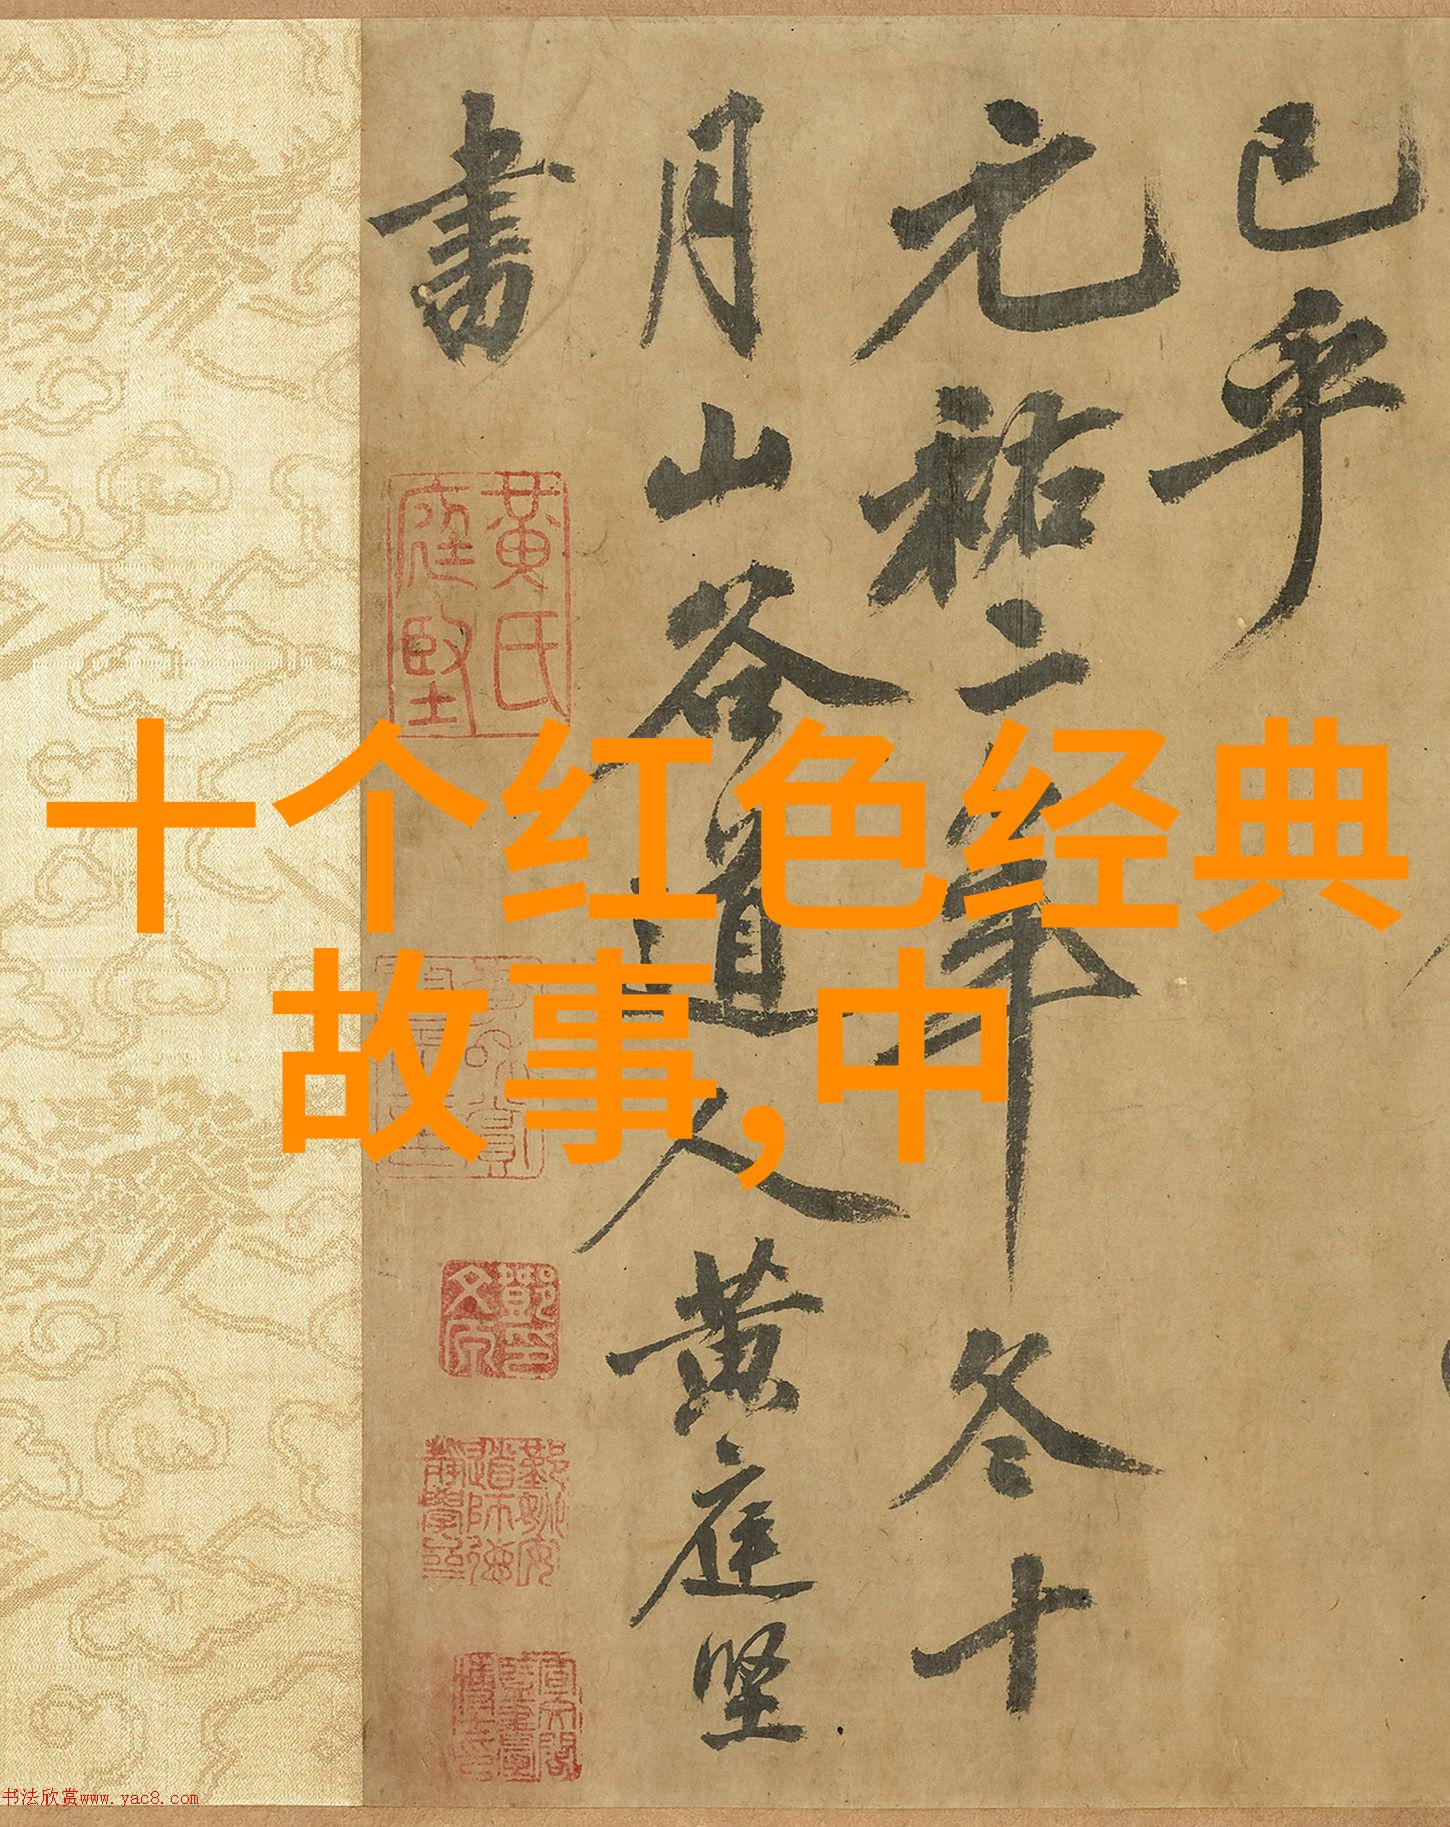 已乎
元祐二年冬十
月山谷道人黄庭坚
書
黃氏庭堅
十个红色经典
故事,中
书法欣赏www.yac8.com